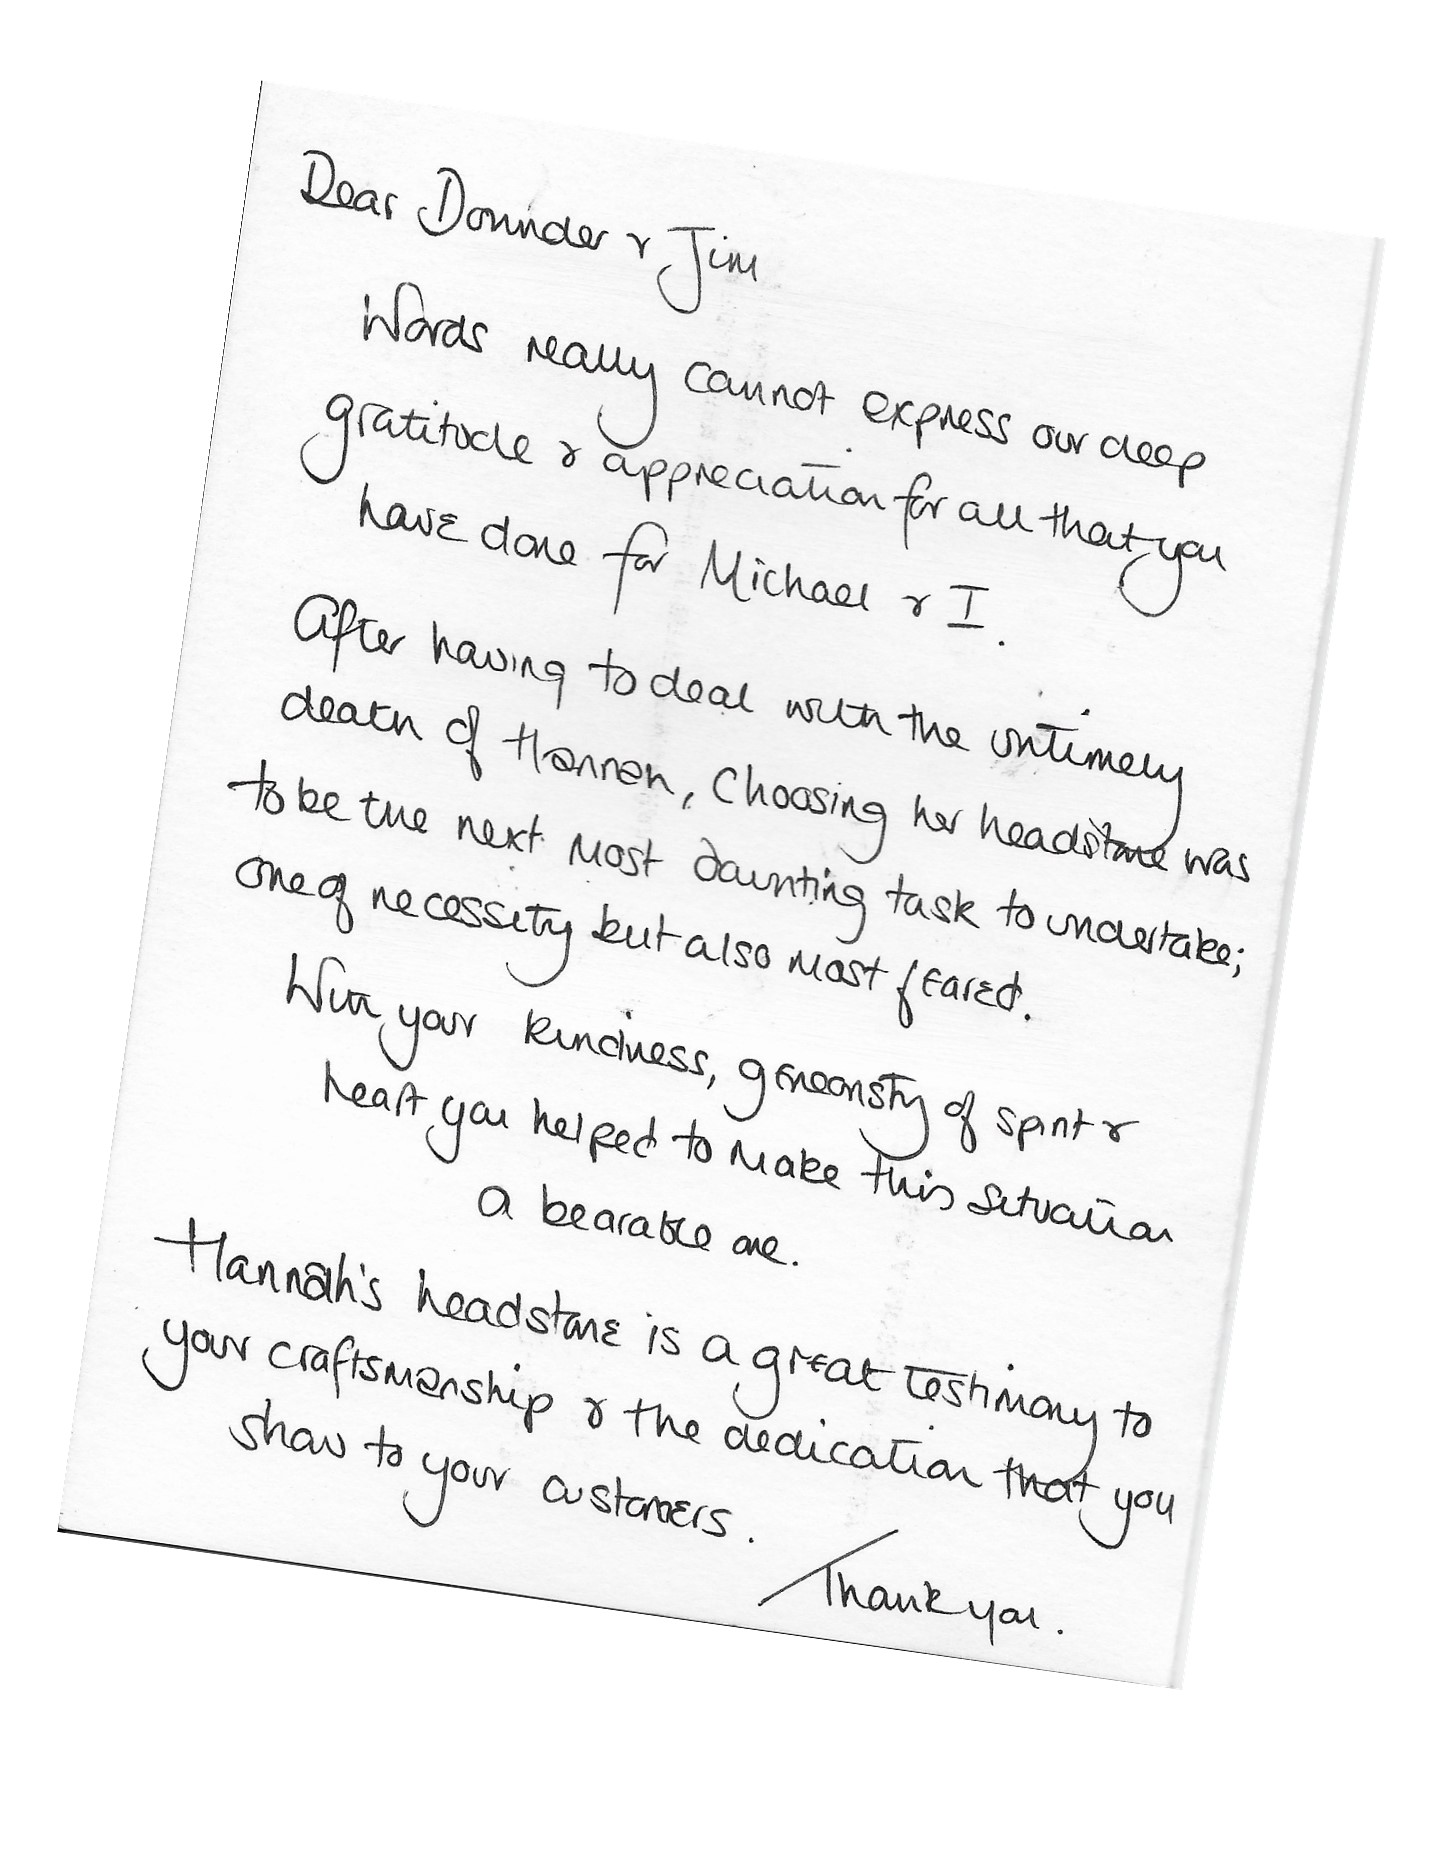 Dear Dominder & Jim
Words really cannot express our deep
gratitude & appreciation for all that you
have done for Michael & I.
After having to deal with the untimely
death of Hannah, Choosing her headstone was
to be the next most daunting task to undertake;
one of necessity but also most feared.
With your kindness, generosity of spirit &
heart you helped to make this situation
a bearable one.
Hannah's headstone is a great testimony to
your craftsmanship & the dedication that you
show to your customers.
Thank you.